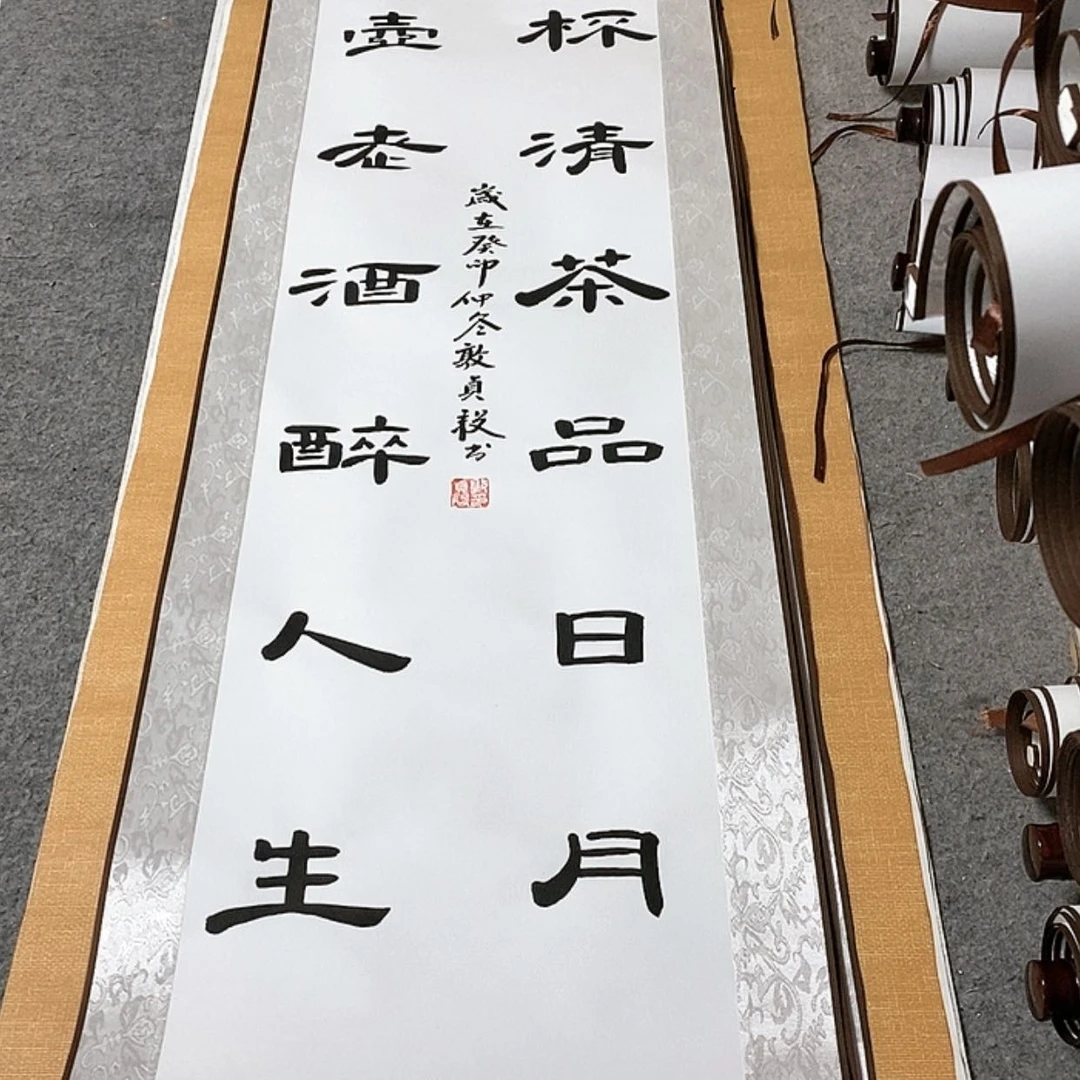 杯清茶品日月
歲在癸卯仲冬敦貞毅书
壺老酒醉人生